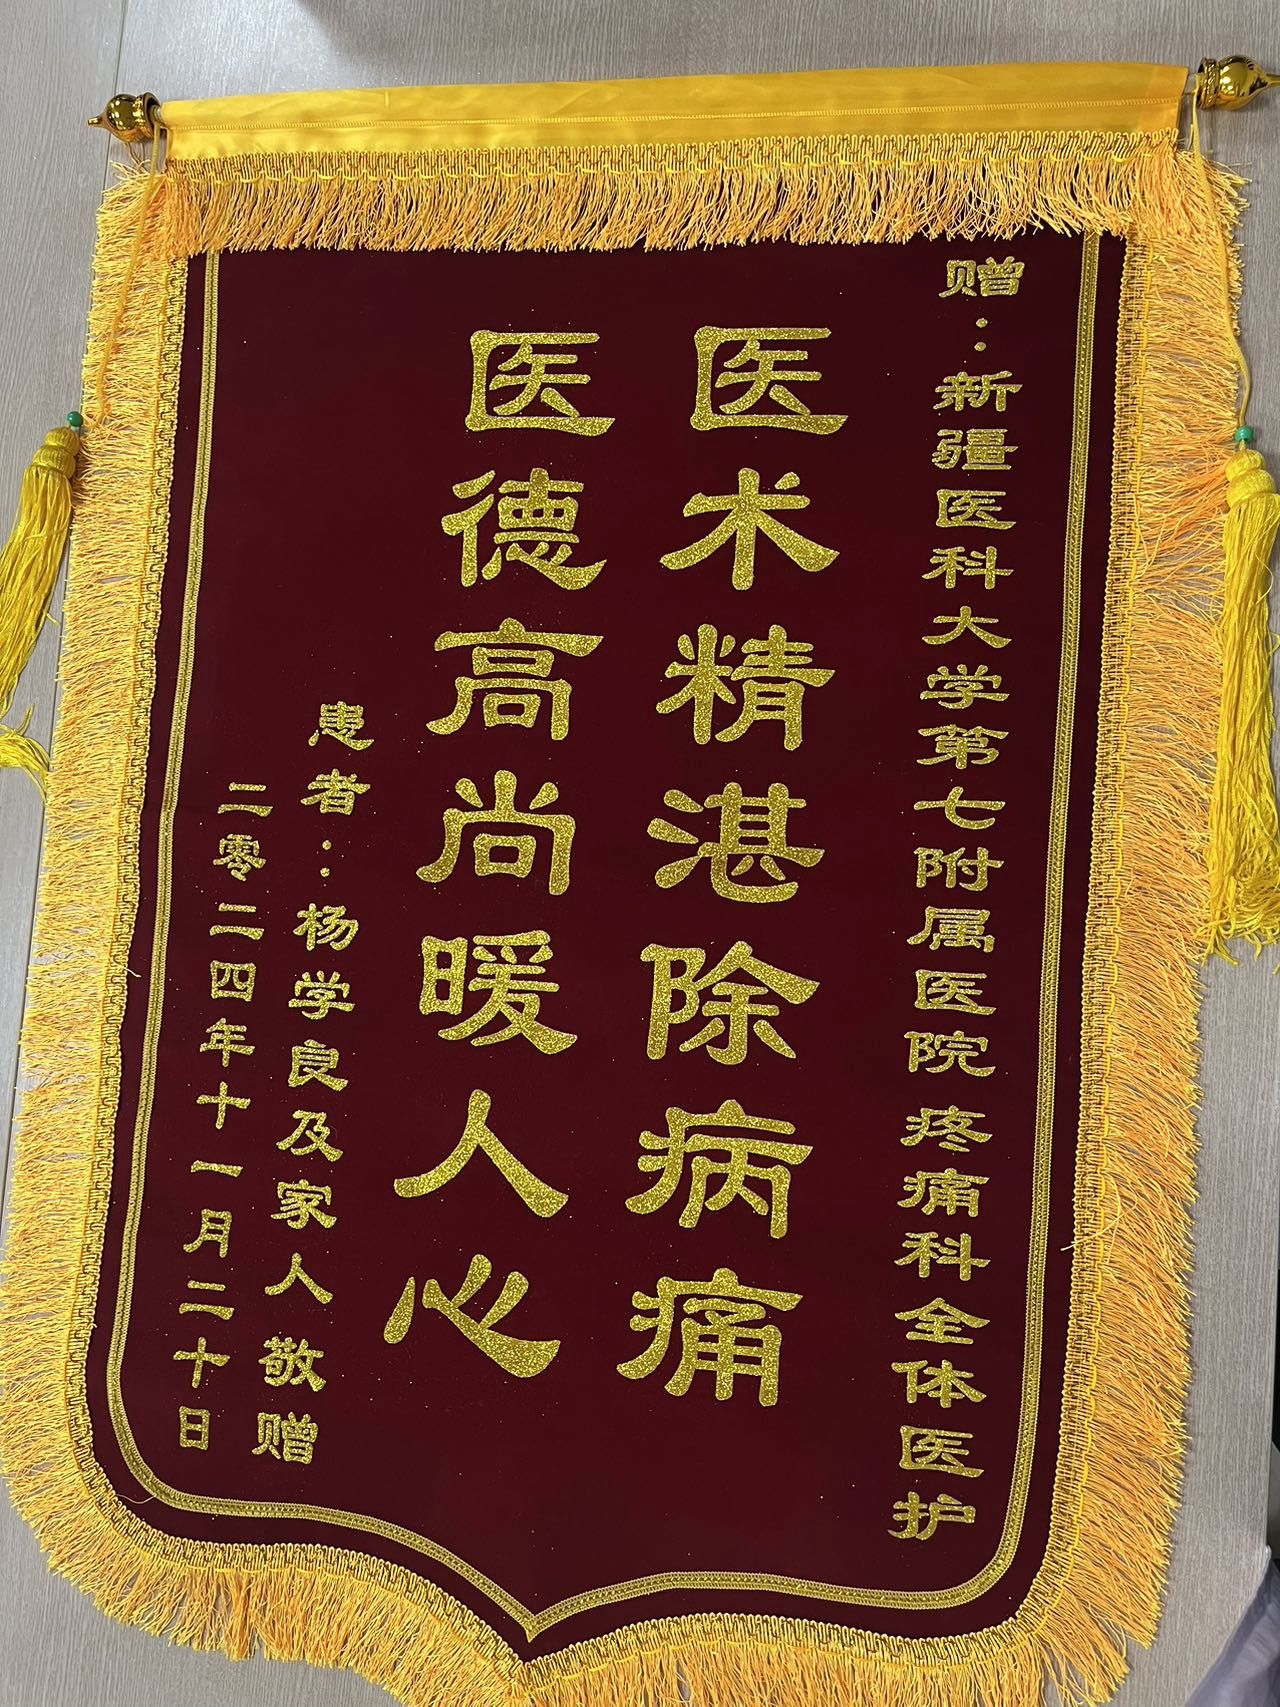 赠：新疆医科大学第七附属医院 疼痛科全体医护
医术精湛除病痛
医德高尚暖人心
患者：杨学良及家人敬赠
二零二四年十一月二十日